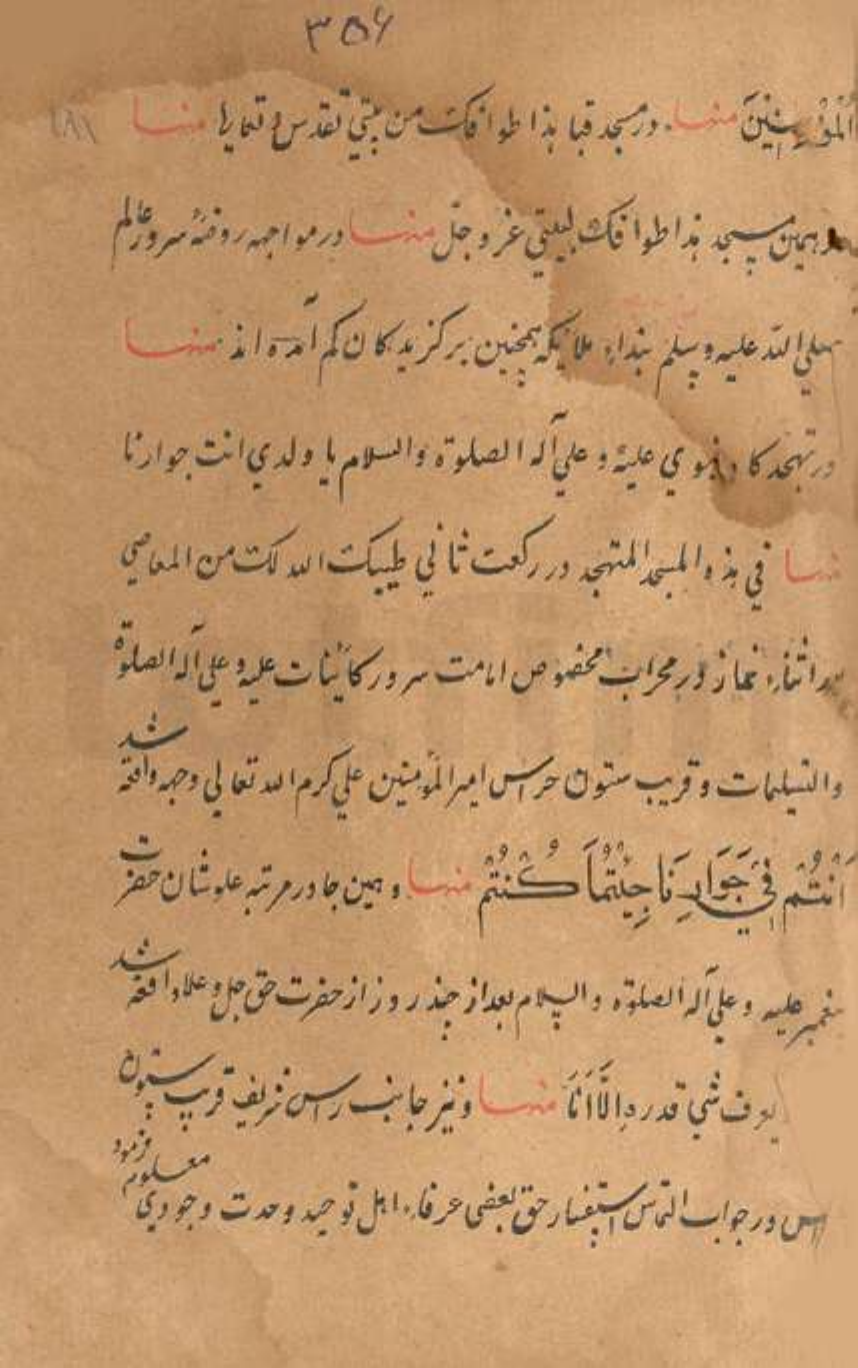 ۳۵۶
۱۸۱
الْمُؤْمِنِيْنَ منها در مسجد قبا هذا طوافک من بيتي تقدس وتعالي منها
در همين مسجد هذا طوافک لبيتي عز وجلّ منها در مواجهه روضهٔ سرور عالم
صلي الله عليه وسلم بنداء ملايکه همچنين برگزيدگان کم آمده اند منها
در تهجد نبوي عليه و علي آله الصلوة والسلام يا ولدي انت جوارنا
منها في هذه المسجد المتهجد در رکعت ثاني طيبک الله لک من المعاصي
در اثناء نماز در محراب مخصوص امامت سرور کائنات عليه و علي آله الصلوة
والتسليمات و قريب ستون حراس امير المؤمنين علي کرم الله تعالي وجهه واقع شد
اَنْتُمْ فِيْ جَوَارِنَا حِيْثُمَا كُنْتُمْ منها و همين جا در مرتبه علو شان حضرت
پيغمبر عليه و علي آله الصلوة والسلام بعد از چند روز از حضرت حق جل و علا واقع شد
يعرف شي قدره اِلَّا اَنَا منها و نيز جانب راس شريف قريب ستون
در جواب التماس استفسار حق بعضي عرفاء اهل توحيد وحدت وجودي معلوم فرمود